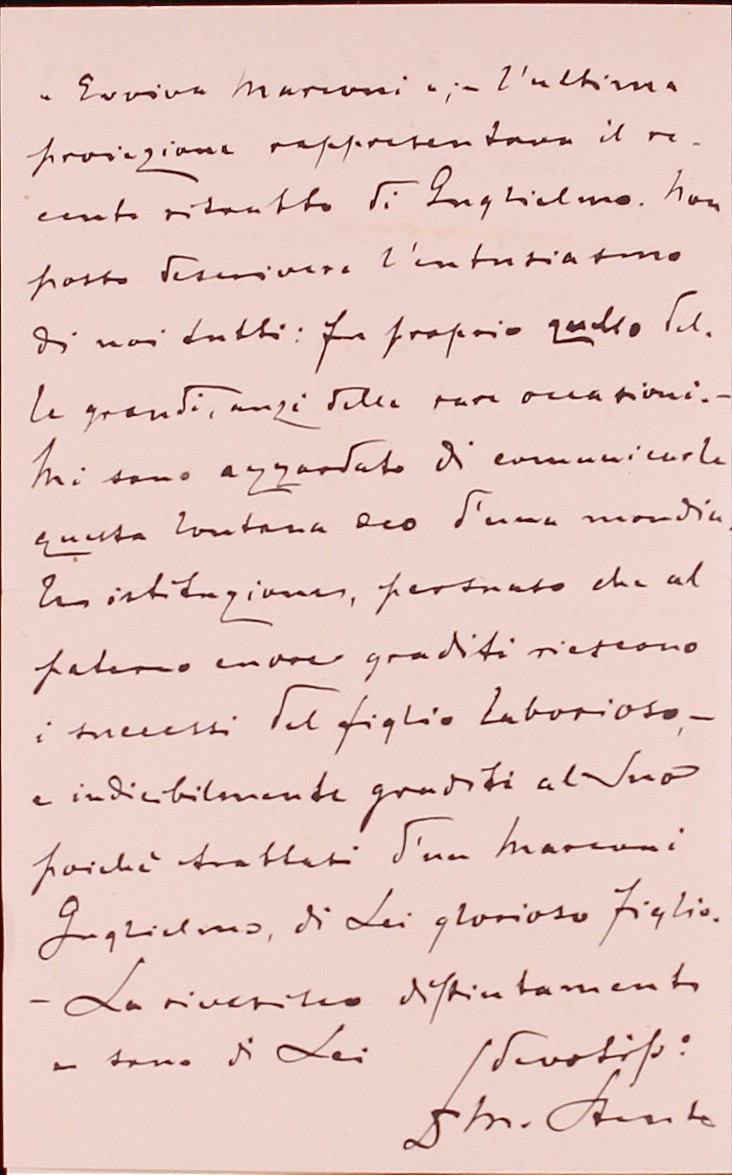 " Evviva Marconi ";- l'ultima
proiezione rappresentava il re-
cente ritratto di Guglielmo. Non
posso descrivere l'entusiasmo
di noi tutti: fu proprio quello del-
le grandi, anzi delle rare occasioni.-
Mi sono azzardato di comunicarle
questa lontana eco d'una mondia-
le istituzione, persuaso che al
paterno cuore graditi riescono
i successi del figlio laborioso,-
e indicibilmente graditi al Suo
poichè trattasi d'un Marconi
Guglielmo, di Lei glorioso figlio.
- La riverisco distintamente
e sono di Lei
devotiss:º